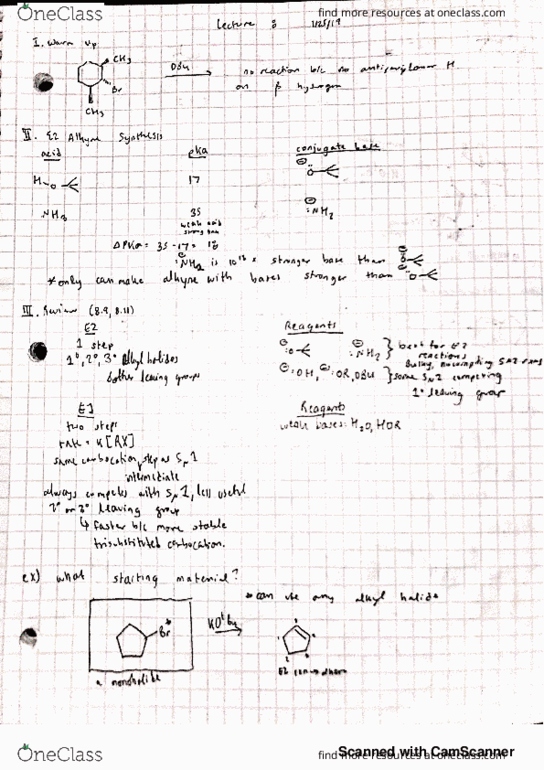 OneClass
find more resources at oneclass.com
Lecture 8
1/25/19
I. Warm up
CH3
Br
CH3
DBU
no reaction b/c no antiperiplanar H
on β hydrogen
II. E2 Alkyne Synthesis
acid
pKa
conjugate base
H-O
17
⊖ :O
NH3
35
weak acid
⊖ :NH2
ΔPKa = 35-17 = 18
⊖ :NH2 is 10^18 x stronger base than ⊖ O
*only can make alkyne with bases stronger than ⊖ O
III. Review (8.9, 8.11)
E2
1 step
1°, 2°, 3° alkyl halides
better leaving groups
Reagents
⊖ :O ⊖ :NH2 } best for E2
reactions
Bulky, no competing SN2
⊖ :OH, ⊖ :OR, DBU } some SN2 competing
1° leaving group
E1
two steps
rate = K[RX]
same carbocation step as SN1
intermediate
always competes with SN1, less useful
2° or 3° leaving group
↳ faster b/c more stable
trisubstituted carbocation.
Reagents
weak bases: H2O, HOR
ex) what starting material?
*can use any alkyl halide
Br*
KOtBu
a monohalide
E2
OneClass
find more resources at oneclass.com
Scanned with CamScanner